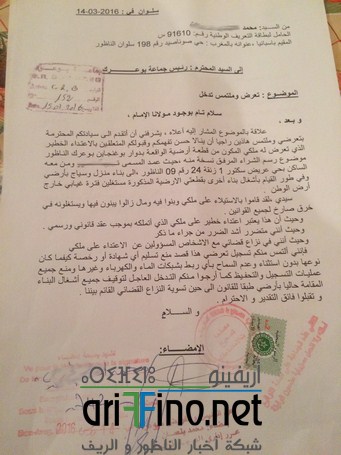 سلوان في : 2016-03-14
من السيد: محمد
الحامل لبطاقة التعريف الوطنية رقم: 91610 س
المقيم بإسبانيا ،وعنوانه بالمغرب : حي صوناصيد رقم 198 سلوان الناظور
إلى السيد المحترم : رئيس جماعة بوعرك
الموضوع : تعرض وملتمس تدخل
سلام تام بوجود مولانا الإمام ,
و بعد ,
علاقة بالموضوع المشار إليه أعلاه ، يشرفني أن أتقدم إلى سيادتكم المحترمة
بتعرضي وملتمس هاتين راجيا أن ينالا حسن تفهمكم وقبولكم المتعلقين بالاعتداء الخطير
الذي تعرض له ملكي المكون من قطعة أرضية الواقعة بدوار بوعرك
موضوع رسم الشراء المرفق نسخة منه ،حيث عمد المسمى ومن معه
الساكن بحي عريض سكتور 1 زنقة 24 رقم 09 الناظور ,إلى بناء منزل وسياج بأرضي
وفي طور القيام بأشغال بناء أخرى بقطعتي الارضية المذكورة مستغلين فترة غيابي خارج
أرض الوطن .
سيدي ،لقد قاموا بالاستيلاء على ملكي وبنوا فيه ومال زالوا يبنون فيها ويستغلونه في
خرق صارخ لجميع القوانين .
وحيث أن هذا يعتبر اعتداء خطير على ملكي الذي أتملكه بموجب عقد قانوني ورسمي .
وحيث أنني متضرر أشد الضرر من جراء ما ذكر
وحيث أنني في نزاع قضائي مع الاشخاص المسؤولين عن الاعتداء على ملكي
فإنني ألتمس منكم تسجيل تعرضي هذا قصد منع تسليم أي شهادة أو رخصة كيفما كان
نوعها بدون استثناء وعدم السماح بأي ربط بشبكات الماء والكهرباء وغيرها ومنع جميع
عمليات التسجيل والتحفيظ كما أرجوا منكم التدخل العاجل لتوقيف جميع أشغال البناء
المقامة حاليا بأرضي طبقا للقانون الى حين تسوية النزاع القضائي القائم بيننا .
و تقبلوا فائق التقدير و الاحترام .
و الســـــلام
الإمضاء:
ⴰⵔⵉⴼⵉⵏⵓ أريفينو
ariffino.net
شبكة أخبار الناظور و الريف